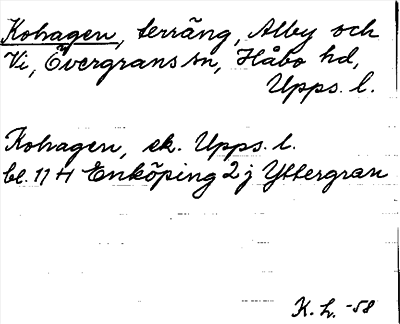 Kohagen, terräng, Alby och
Vi, Övergrans sn, Håbo hd,
Upps. l.
Kohagen, ek. Upps. l.
bl. 11 H Enköping 2 j Yttergran
K. h. -58